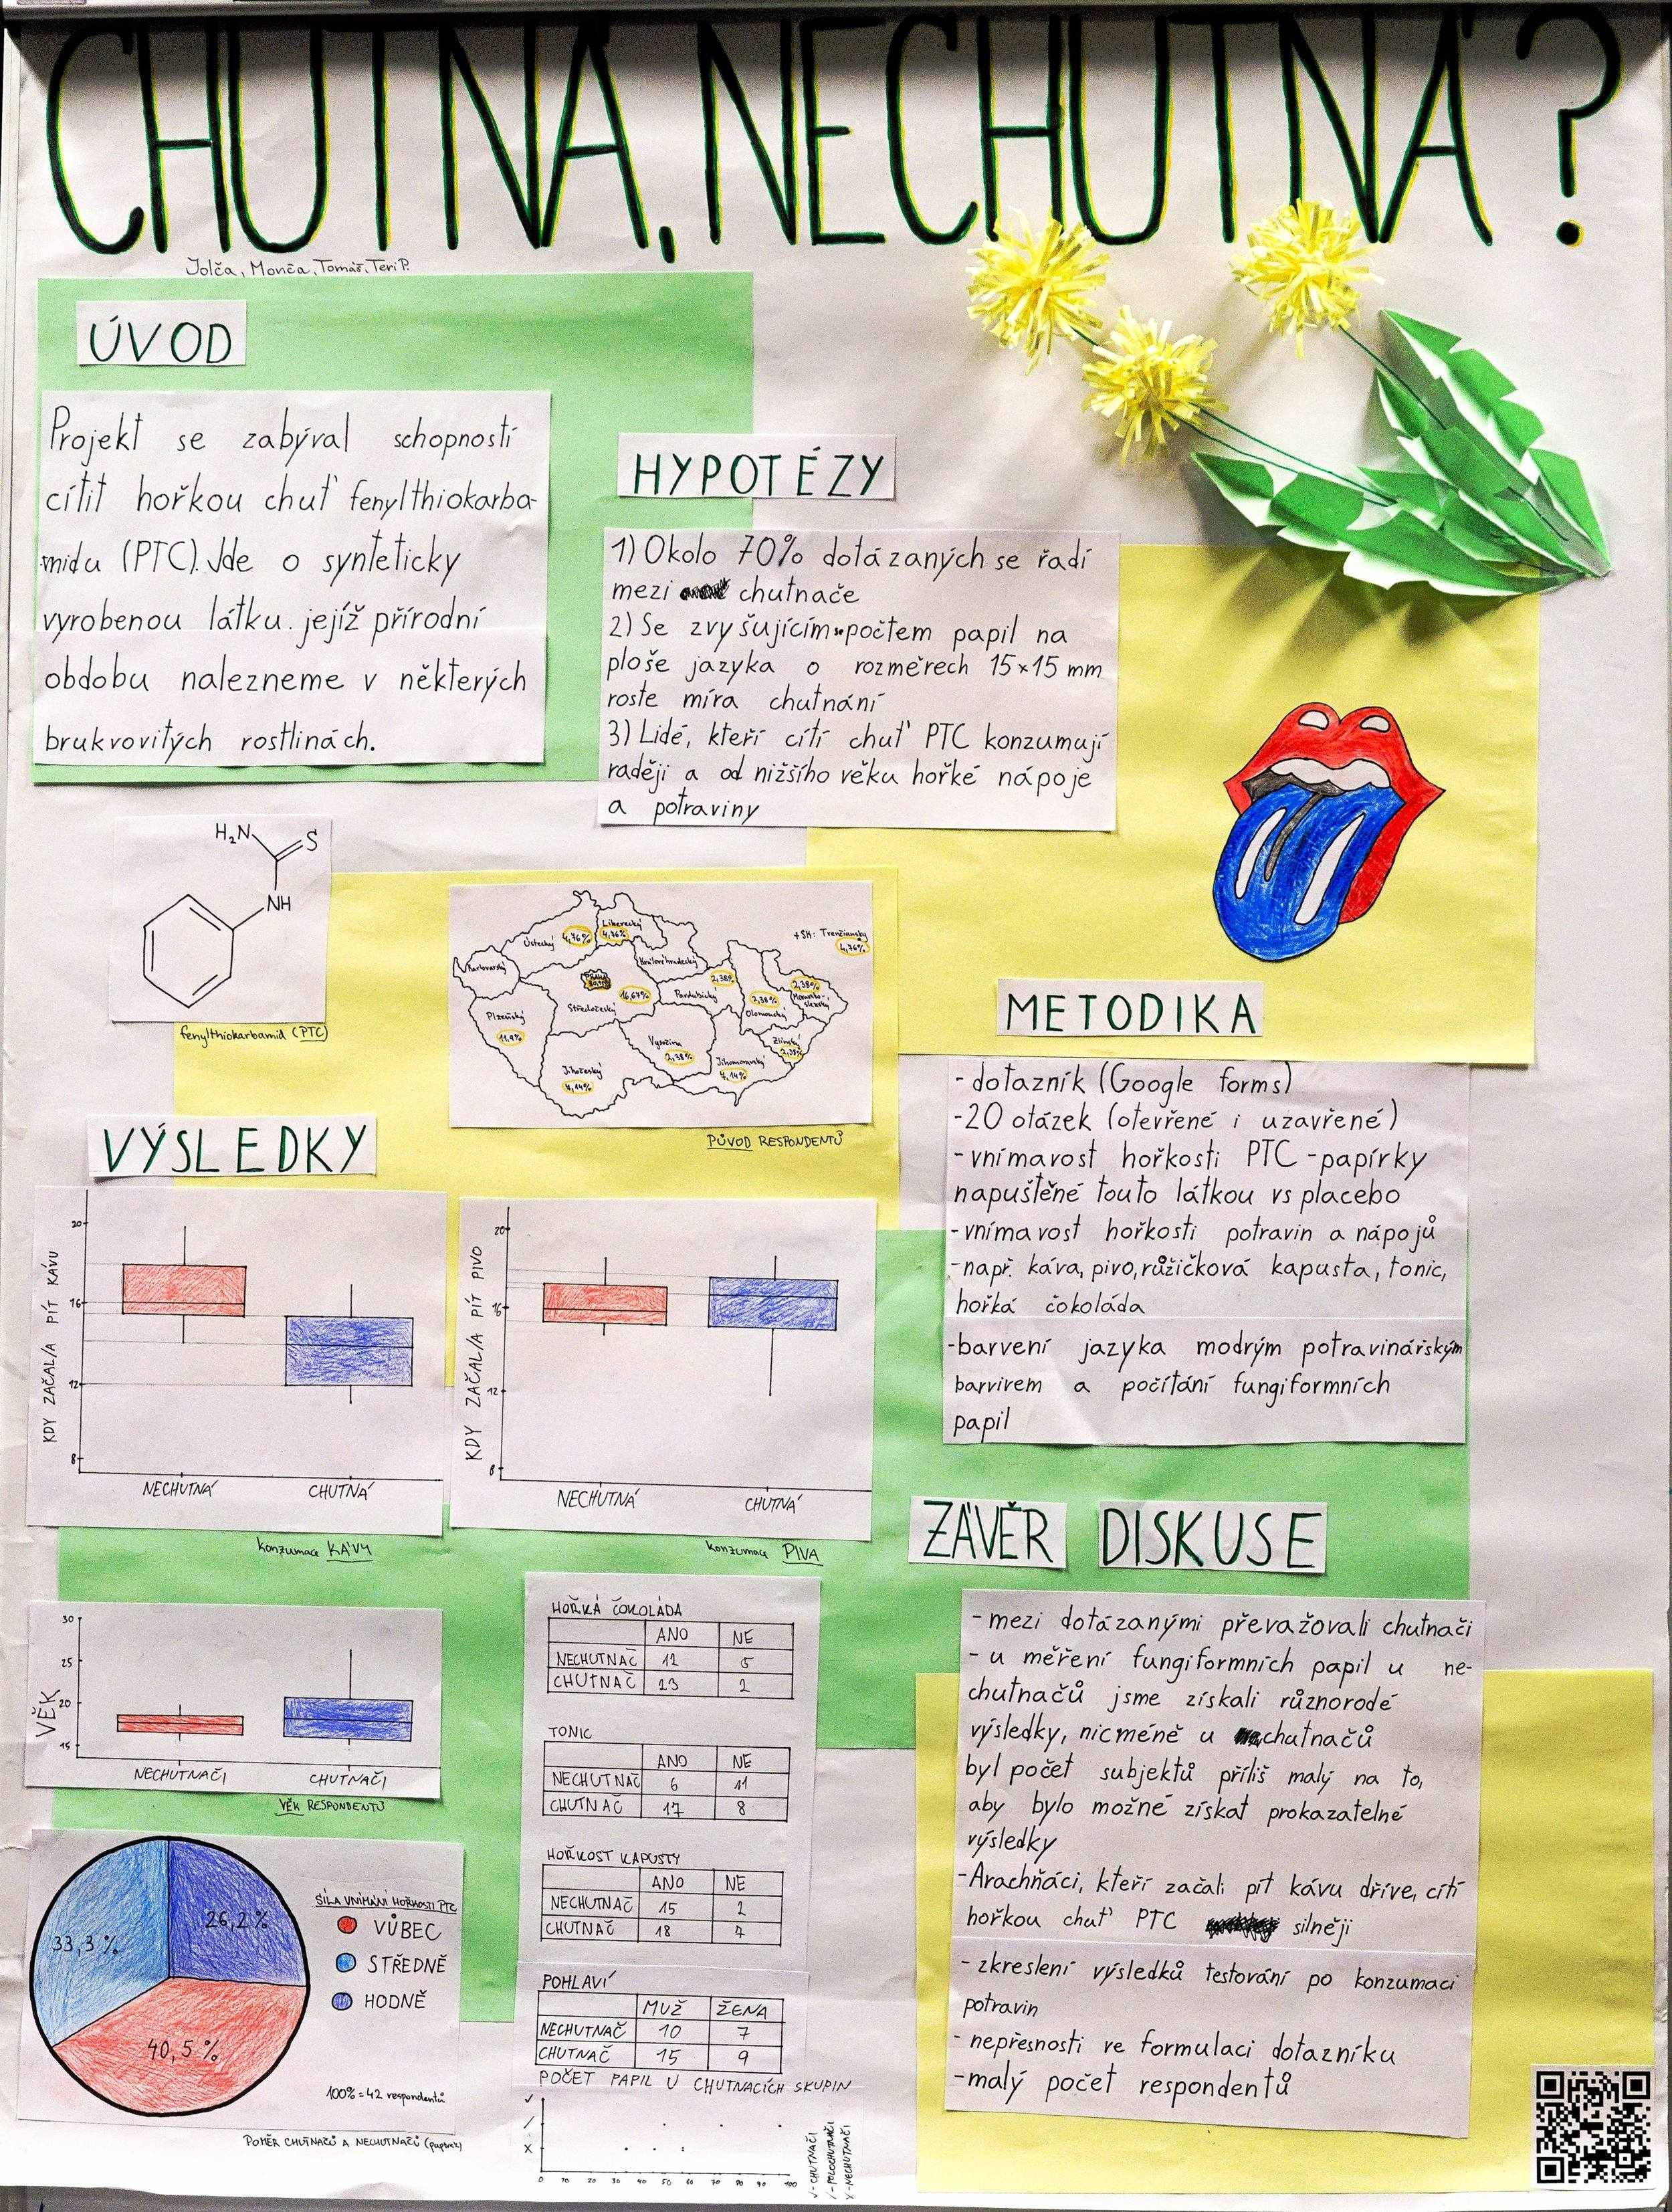 CHUTNÁ, NECHUTNÁ?
Jolča, Monča, Tomáš, Teri P.
ÚVOD
Projekt se zabýval schopností
cítit hořkou chuť fenylthiokarba-
midu (PTC). Jde o synteticky
vyrobenou látku, jejíž přírodní
obdobu nalezneme v některých
brukvovitých rostlinách.
HYPOTÉZY
1) Okolo 70% dotázaných se řadí
mezi chutnače
2) Se zvyšujícím počtem papil na
ploše jazyka o rozměrech 15×15 mm
roste míra chutnání
3) Lidé, kteří cítí chuť PTC konzumují
raději a od nižšího věku hořké nápoje
a potraviny
H₂N
S
NH
fenylthiokarbamid (PTC)
Liberecký
4,76%
Ústecký
4,76%
+SK: Trenčianský
4,76%
Karlovarský
Královéhradecký
Středočeský
16,67%
Pardubický
2,38%
Olomoucký
2,38%
Moravsko-
slezský
2,38%
Plzeňský
11,9%
Vysočina
2,38%
Zlínský
2,38%
Jihočeský
7,14%
Jihomoravský
7,14%
PŮVOD RESPONDENTŮ
METODIKA
- dotazník (Google forms)
-20 otázek (otevřené i uzavřené)
- vnímavost hořkosti PTC - papírky
napuštěné touto látkou vs placebo
- vnímavost hořkosti potravin a nápojů
- např. káva, pivo, růžičková kapusta, tonic,
hořká čokoláda
-barvení jazyka modrým potravinářským
barvivem a počítání fungiformních
papil
VÝSLEDKY
KDY ZAČAL/A PÍT KÁVU
20
16
12
8
NECHUTNÁ CHUTNÁ
konzumace KÁVY
KDY ZAČAL/A PÍT PIVO
20
16
12
8
NECHUTNÁ CHUTNÁ
konzumace PIVA
VĚK
30
25
20
15
NECHUTNAČI CHUTNAČI
VĚK RESPONDENTŮ
HOŘKÁ ČOKOLÁDA
ANO NE
NECHUTNAČ 12 5
CHUTNAČ 23 2
TONIC
ANO NE
NECHUTNAČ 6 11
CHUTNAČ 17 8
HOŘKOST KAPUSTY
ANO NE
NECHUTNAČ 15 2
CHUTNAČ 18 7
POHLAVÍ
MUŽ ŽENA
NECHUTNAČ 10 7
CHUTNAČ 15 9
POČET PAPIL U CHUTNACÍCH SKUPIN
✓
/
X
0 10 20 30 40 50 60 70 80 90 100
✓-CHUTNAČI
/-POLOCHUTNAČI
X-NECHUTNAČI
26,2 %
33,3 %
40,5 %
SÍLA VNÍMÁNÍ HOŘKOSTI PTC
VŮBEC
STŘEDNĚ
HODNĚ
100% = 42 respondentů
POMĚR CHUTNAČŮ A NECHUTNAČŮ (papírek)
ZÁVĚR DISKUSE
- mezi dotázanými převažovali chutnači
- u měření fungiformních papil u ne-
chutnačů jsme získali různorodé
výsledky, nicméně u chutnačů
byl počet subjektů příliš malý na to,
aby bylo možné získat prokazatelné
výsledky
-Arachňáci, kteří začali pít kávu dříve, cítí
hořkou chuť PTC silněji
- zkreslení výsledků testování po konzumaci
potravin
- nepřesnosti ve formulaci dotazníku
- malý počet respondentů